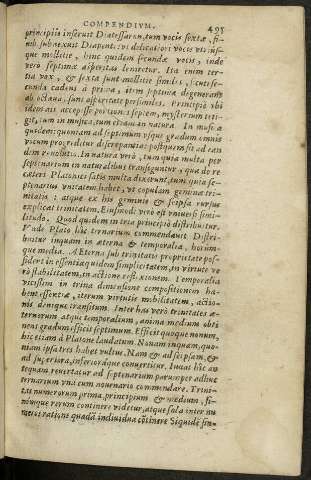 COMPENDIVM. 495
principiis inseruit Diatessaron, tum vocis sextæ, si-
mul subnexuit Diapente: vt delicatior vocis vtriusque
que mollitie, hinc quidem secundæ vocis, inde
verò septimæ asperitas leniretur. Ita enim ter-
tia vox, & sexta sunt mollitie similes, sicut se-
cunda cadens à prima, item septima degenerans
ab octaua, sunt asperitate persimiles. Principiò ibi
idem ait accepisse portionem septem, mysterium teti-
git, tum in musica, tum etiam in natura. In musica
quidem: quoniam ad septimum vsque gradum omnis
vocum progreditur discrepantia: postquem fit ad eandem
reuolutio. In natura verò, tum quia multa per
septenarium in naturalibus transiguntur, qua de re
cæteri Platonici satis multa dixerunt, tum quia se-
ptenarius vnitatem habet, vt copulam geminæ tri-
nitatis: atque ex his geminis & seipsa rursus
explicat trinitatem. Eiusmodi verò est vniuersi simi-
litudo. Quod quidem in tria principiò distribuitur.
Vnde Plato hîc ternarium commendauit. Distri-
buitur inquam in æterna & temporalia, horum-
que media. Æterna sub trinitatis proprietate pos-
sident in essentia quidem simplicitatem, in virtute ve
rò stabilitatem, in actione esti xtonem. Temporalia
vicissim in trina dimensione compositionem ha-
bent essentiæ, iterum virtutis mobilitatem, actio-
nis denique transitum. Inter has verò trinitates æ-
ternorum atque temporalium, anima medium obti
nens gradum efficit septimum. Efficit quoque nonum,
hîc etiam à Platone laudatum. Nonam inquam, quo-
niam ipsa tres habet vultus. Nam & ad seipsam, &
ad superiora, inferioráque conuertitur. Iuuat hîc an
tequam reuertatur ad septenarium parumper adhuc
ternarium vnà cum nouenario commendare. Trini-
tas numerorum prima, principium & medium, fi-
nemque rerum continere videtur, atque sola inter nu
meros ratione quadã indiuidua cõtinere. Siquidẽ sin-